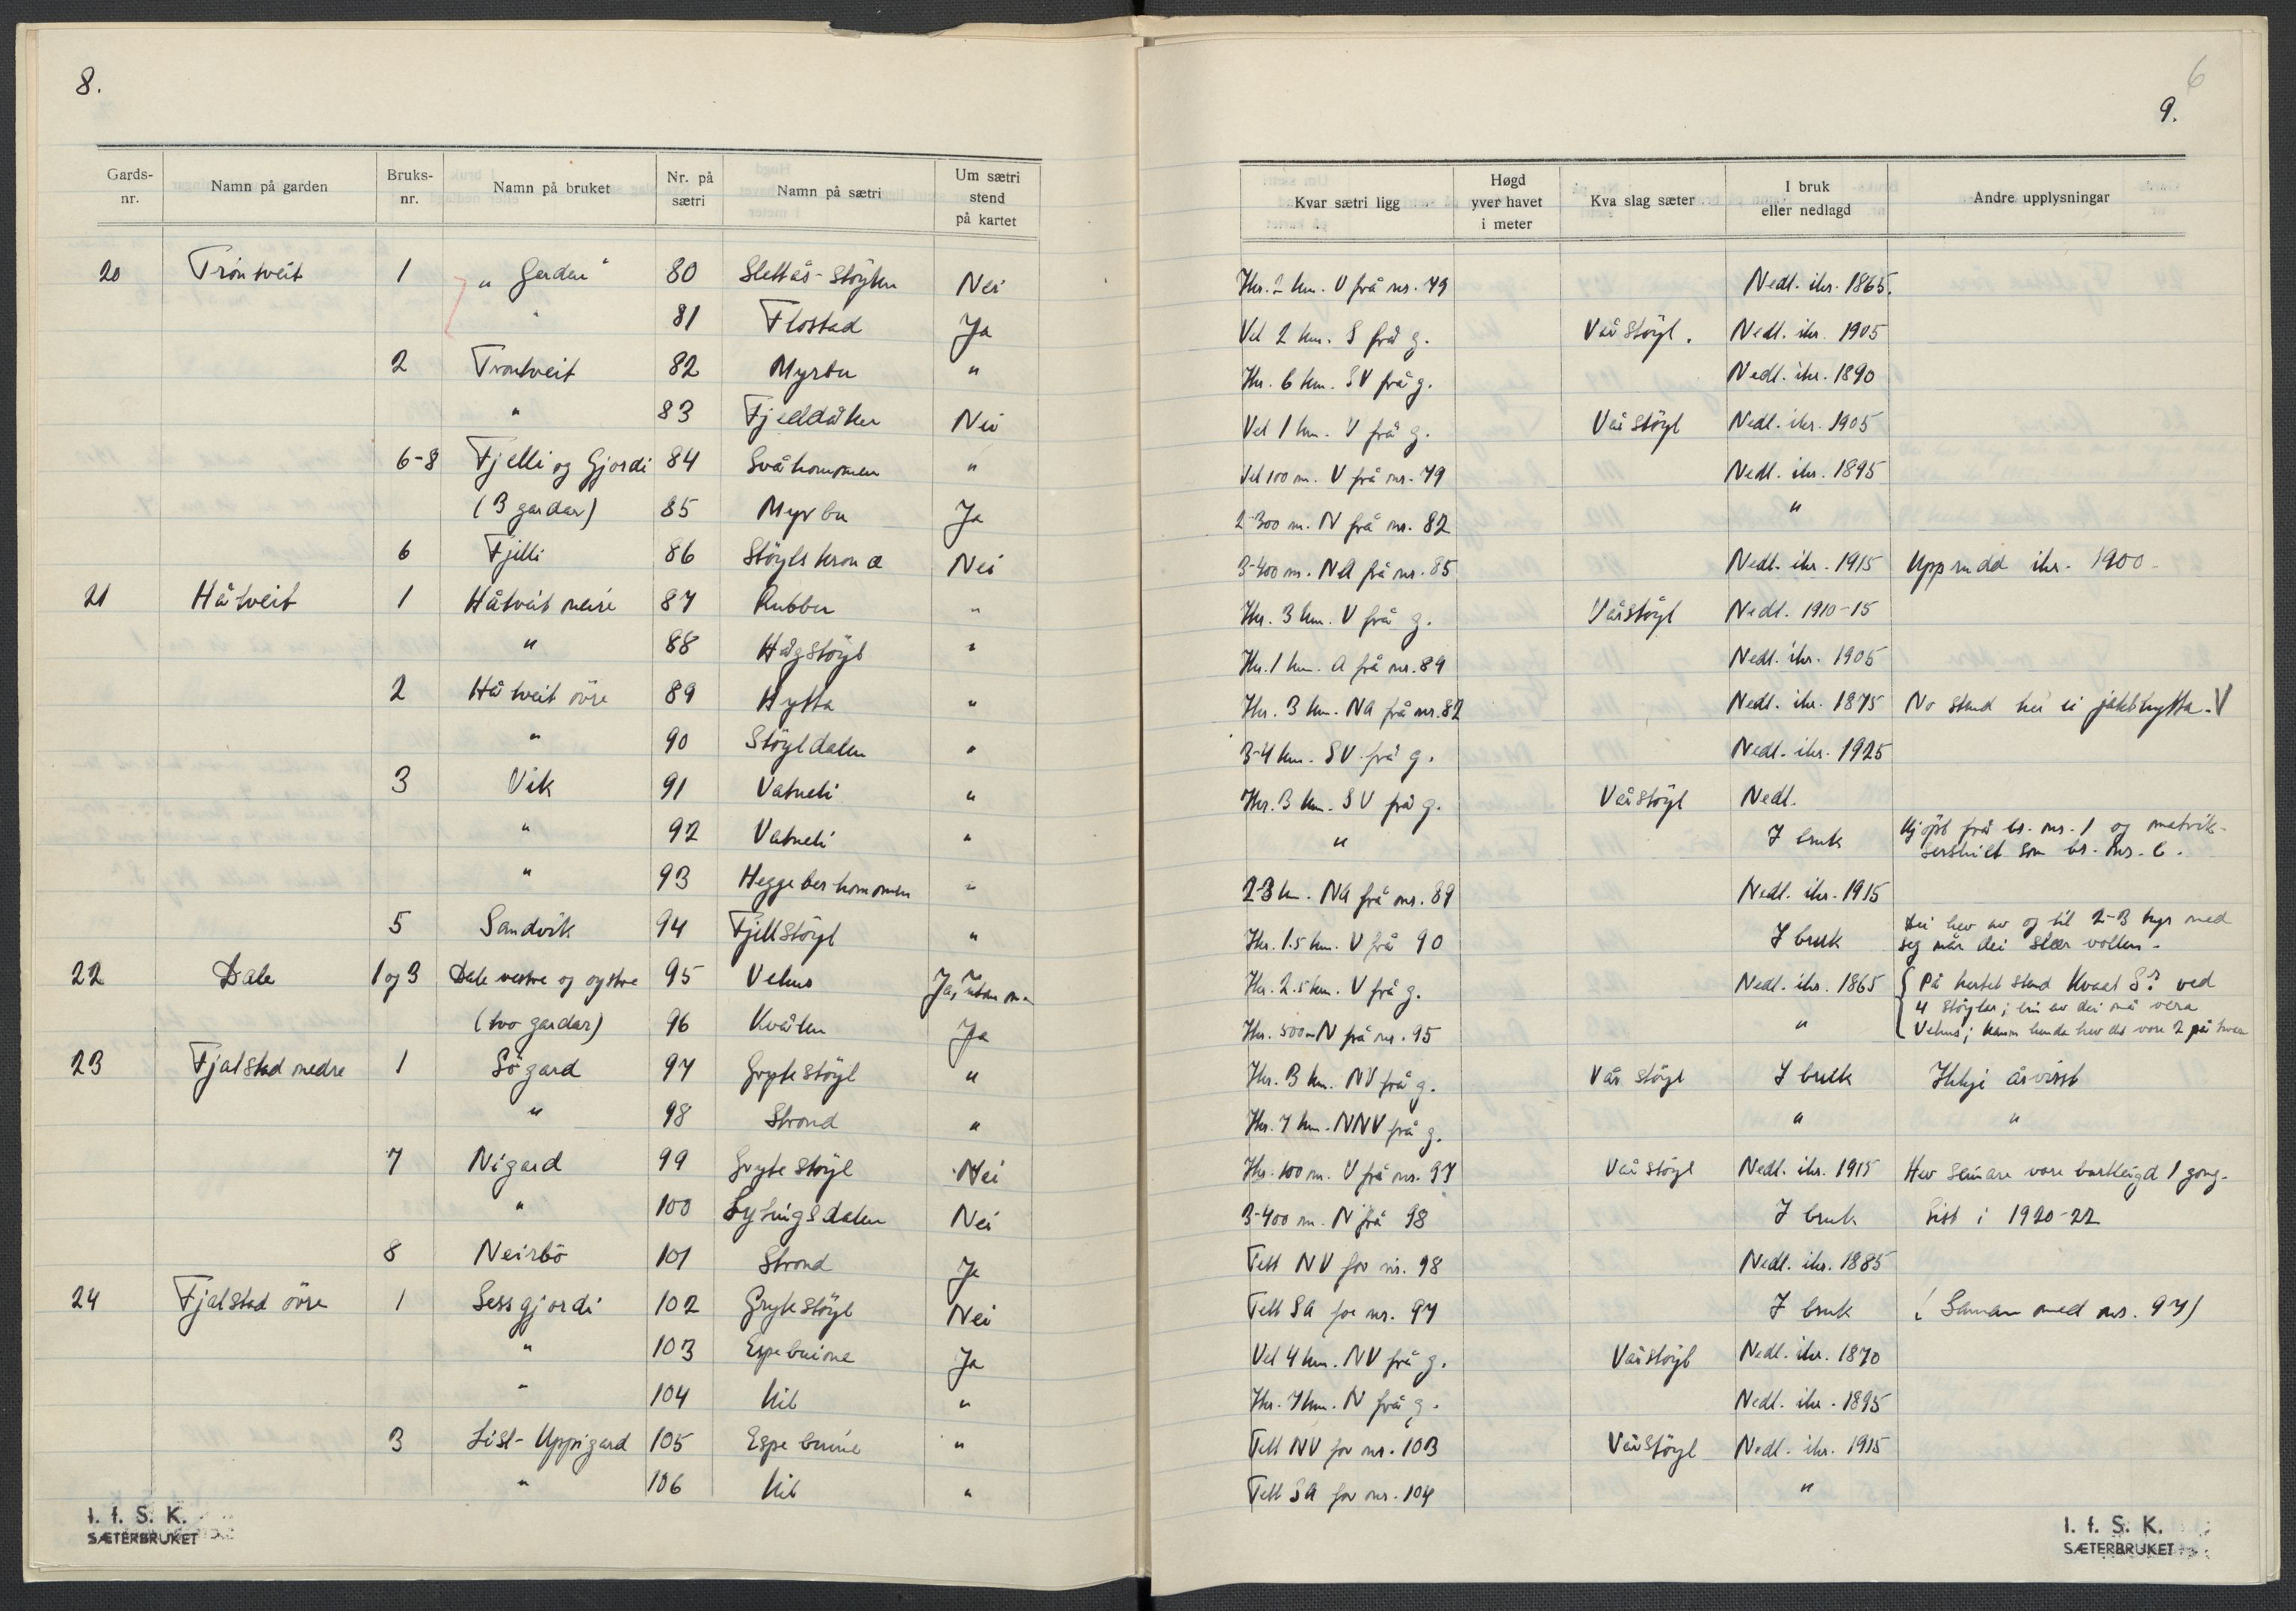 8.
Gards-nr. Namn på garden Bruks-nr. Namn på bruket Nr. på sætri Namn på sætri Um sætri stend på kartet
20 Trontveit 1 „Garden“ 80 Slettås-støylen Nei
" 81 Flostad Ja
2 Trontveit 82 Myrbu "
" 83 Fjelldåken Nei
6-8 Fjelli og Gjordi 84 Svåhommen "
(3 gardar) 85 Myrbu Ja
6 Fjilli 86 Støylskron a Nei
21 Håtveit 1 Håtveit neire 87 Rubbu "
" 88 Hågstøyl "
2 Håtveit øvre 89 Hytta "
" 90 Støyldalen "
3 Vik 91 Vatneli "
" 92 Vatneli "
" 93 Heggeberhommen "
5 Sandvik 94 Fjellstøyl "
22 Dale 1 og 3 Dale vestre og øystre 95 Vehus Ja, utan n.
(tvo gardar) 96 Kvåten Ja
23 Fjalstad nedre 1 Søgard 97 Grytestøyl "
" 98 Strond "
7 Nigard 99 Grytestøyl Nei
" 100 Lyhngsdalen Nei
8 Neirbø 101 Strond Ja
24 Fjalstad øvre 1 Sessgjordi 102 Grytestøyl Nei
" 103 Espebuione Ja
" 104 Kil "
3 List-Uppigard 105 Espebuine "
" 106 Kil "
I. f. S. K.
SÆTERBRUKET
6
9.
Kvar sætri ligg Høgd yver havet i meter Kva slag sæter I bruk eller nedlagd Andre upplysningar
Ikr. 2 km. V frå nr. 79 Nedl. ikr. 1865.
Vel 2 km. S frå g. Vårstøyl. Nedl. ikr. 1905
Ikr. 6 km. SV frå g. Nedl. ikr. 1890
Vel 1 km. V frå g. Vårstøyl Nedl. ikr. 1905
Vel 100 m. V frå nr. 79 Nedl. ikr. 1895
2-300 m. N frå nr. 82 "
3-400 m. NA frå nr. 85 Nedl. ikr. 1915 Upprudd ikr. 1900.
Ikr. 3 km. V frå g. Vårstøyl Nedl. 1910-15
Ikr. 1 km. A frå nr. 89 Nedl. ikr. 1905
Ikr. 3 km. NA frå nr. 82 Nedl. ikr. 1875 No stend her ei jakthytta. V
3-4 km. SV frå g. Nedl. ikr. 1925
Ikr. 3 km. SV frå g. Vårstøyl Nedl.
" I bruk Kjøpt frå br. nr. 1 og matrik-
serskilt som br. nr. 6.
2-3 km. NA frå nr. 89 Nedl. ikr. 1915
Ikr. 1.5 km. V frå 90 I bruk Dei hev av og til 2-3 kyr med
seg når dei slær vollen.
Ikr. 2.5 km. V frå g. Nedl. ikr. 1865 På kartet stend Kvaat S? ved
4 støylar; ein av dei må vera
Ikr. 500 m N frå nr. 95 " Vehus; kann henda hev det vore 2 på kvar
Ikr. 3 km. NV frå g. Vårstøyl I bruk Ikkje årvisst
Ikr. 7 km. NNV frå g. " "
Ikr. 100 m. V frå nr. 97 Vårstøyl Nedl. ikr. 1915 Hev seinare vore bortleigd 1 gong.
3-400 m. N frå 98 I bruk Sist i 1920-22
Tett NV for nr. 98 Nedl. ikr. 1885
Tett SA for nr. 97 I bruk (Saman med nr. 97)
Vel 4 km. NV frå g. Vårstøyl Nedl. ikr. 1870
Ikr. 7 km. N frå g. Nedl. ikr. 1895
Tett NV for nr. 103 Vårstøyl Nedl. ikr. 1915
Tett SA for nr. 104 "
I. f. S. K.
SÆTERBRUKET